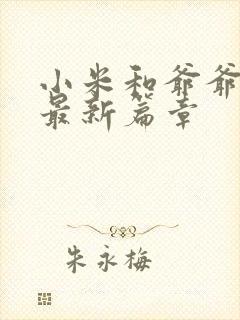 小米和爷爷
最新篇章
朱永梅